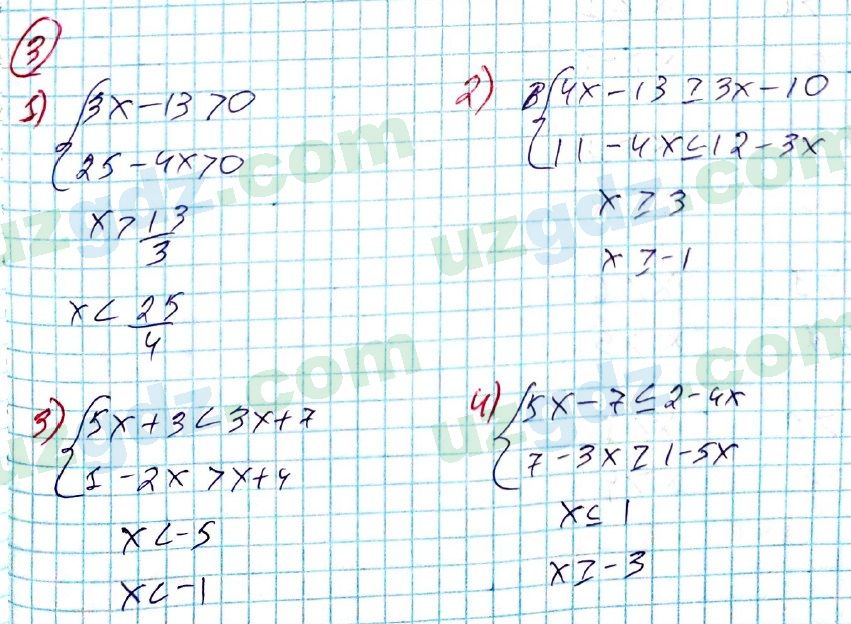 3
1) { 3x - 13 > 0
25 - 4x > 0
x > 13/3
x < 25/4
2) { 4x - 13 ≥ 3x - 10
11 - 4x ≤ 12 - 3x
x ≥ 3
x ≥ -1
3) { 5x + 3 < 3x + 7
1 - 2x > x + 4
x < -5
x < -1
4) { 5x - 7 ≤ 2 - 4x
7 - 3x ≥ 1 - 5x
x ≤ 1
x ≥ -3
uzgdz.com
uzgdz.com
uzgdz.com
uzgdz.com